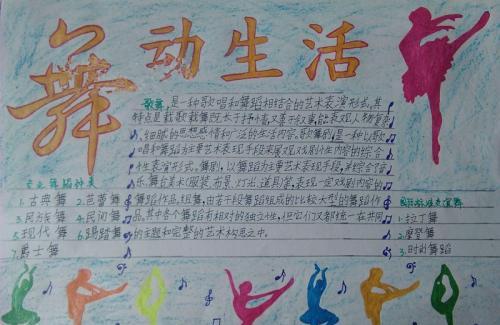 舞动生活
歌舞，是一种歌唱和舞蹈相结合的艺术表演形式，其
特点是载歌载舞，长于抒情，又善于叙事，能表现人物复杂
、细腻的思想感情和广泛的生活内容。歌舞剧，是一种以歌
唱和舞蹈为主要艺术表现手段来展现戏剧性内容的综合
性表演形式。舞剧，以舞蹈为主要艺术表现手段，并综合音
乐、舞台美术(服装、布景、灯光、道具)等，表现一定戏剧内容的
舞蹈作品。组舞，由若干段舞蹈组成的比较大型的舞蹈作
品，其中各个舞蹈有相对的独立性，但它们又都统一在共同
的主题和完整的艺术构思之中。
专业舞蹈种类
1.古典舞 2.芭蕾舞
3.民族舞 4.民间舞
5.现代舞 6.踢踏舞
7.爵士舞
国际标准交谊舞
1.拉丁舞
2.摩登舞
3.时尚舞蹈